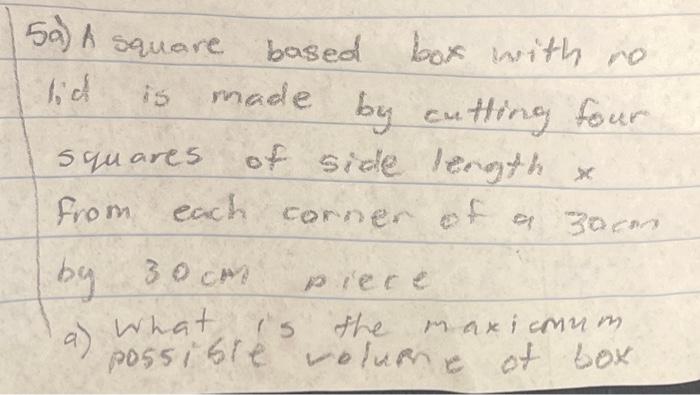 5a) A square based box with no
lid is made by cutting four
squares of side length x
from each corner of a 30cm
by 30cm piece
a) What is the maxicmum
possible volume of box